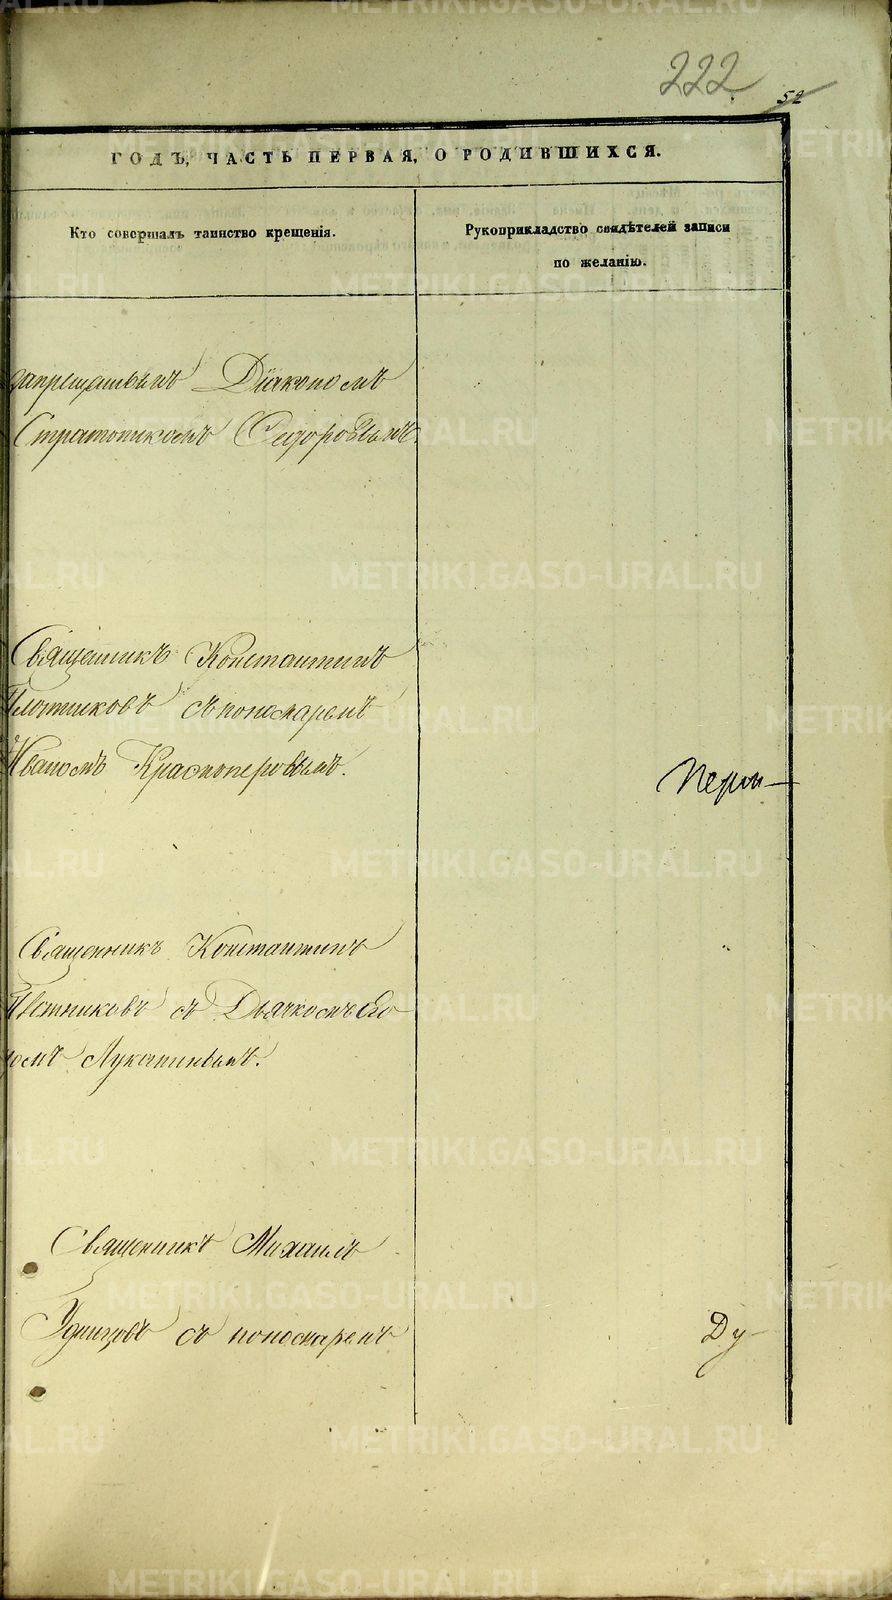 222
52
ГОДЪ, ЧАСТЬ ПЕРВАЯ, О РОДИВШИХСЯ.
Кто совершалъ таинство крещенія.
Рукоприкладство свидѣтелей записи
по желанію.
запрещаннымъ Діакономъ
Стратоникомъ Сидоровымъ.
Священникъ Константинъ
Плотниковъ съ пономаремъ
Иваномъ Красноперовымъ.
Перм
Священникъ Константинъ
съ Дьячкомъ Его
ромъ Лукапинымъ.
Священникъ Михаилъ
Удинцовъ съ пономаремъ
Ду
METRIKI.GASO-URAL.RU